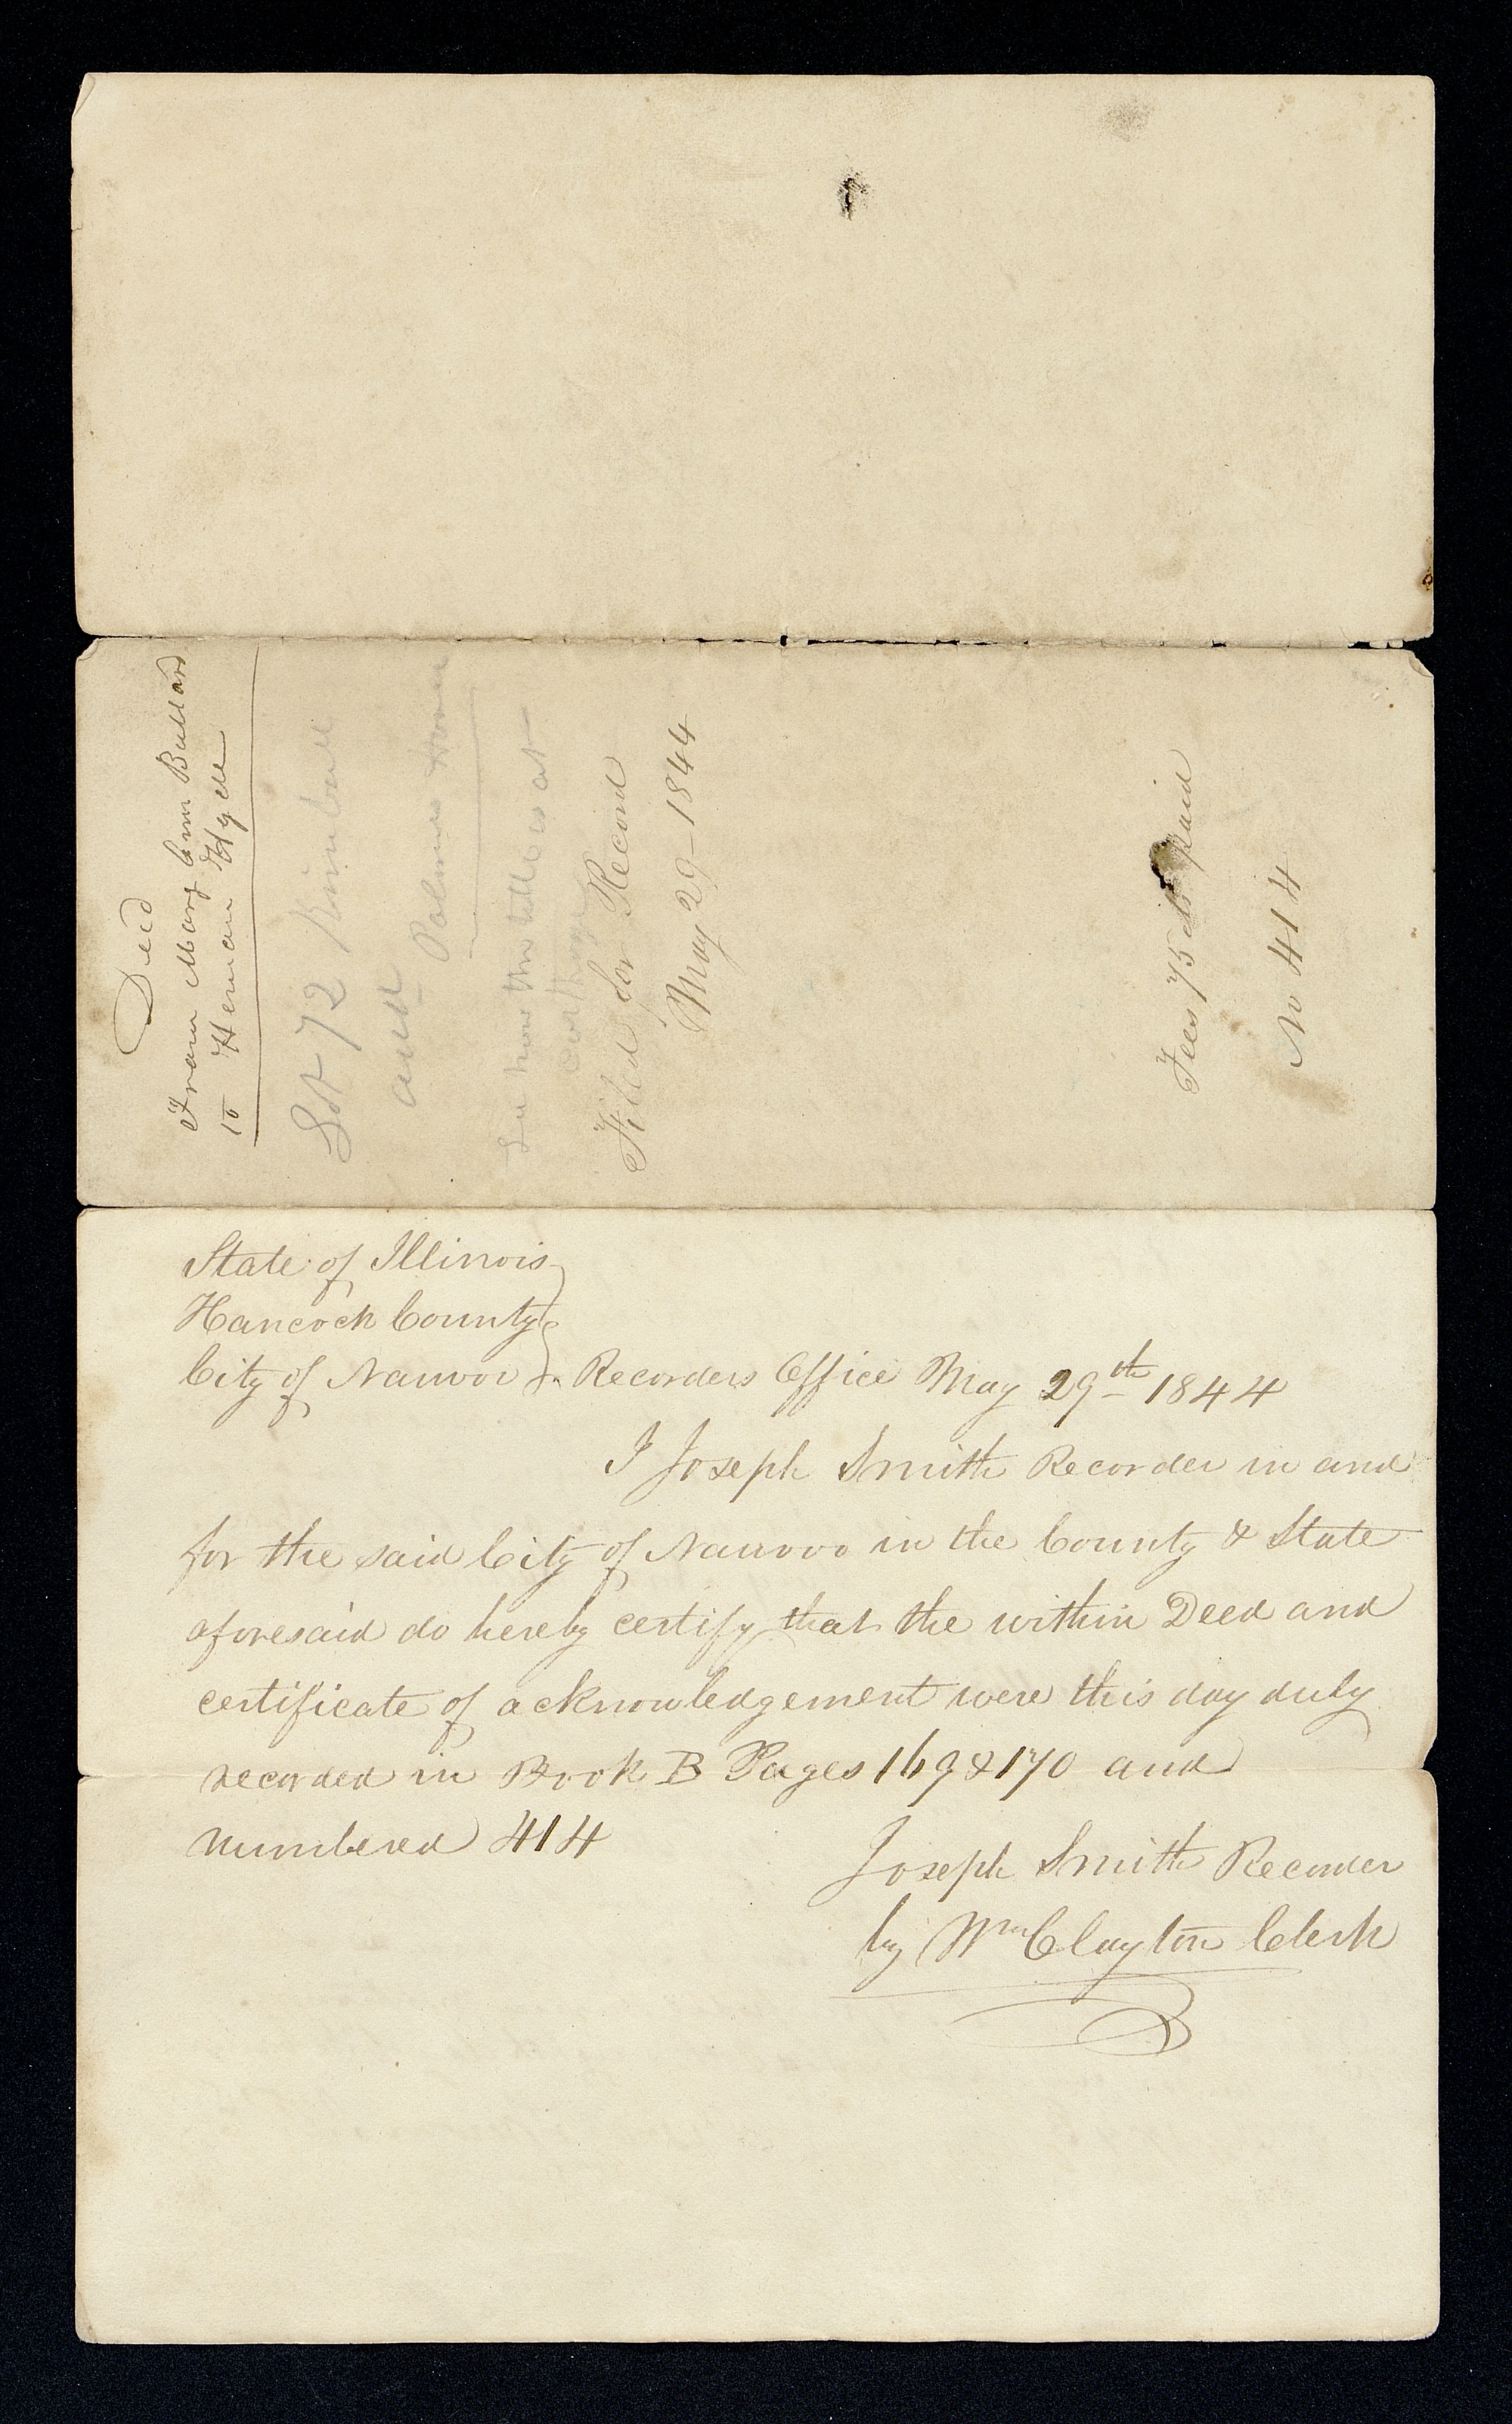 Deed
From Mary Ann Bullard
to Heman Hyde
Lot 72 Kimball
and
Palmer
See how the title is at
Carthage
Filed for Record
May 29–1844
Fees 75 cts paid
No 414
State of Illinois
Hancock County
City of Nauvoo } Recorders Office May 29th 1844
I Joseph Smith Recorder in and
for the said City of Nauvoo in the County & State
aforesaid do hereby certify that the within Deed and
certificate of acknowledgement were this day duly
recorded in Book B Pages 169 & 170 and
numbered 414
Joseph Smith Recorder
by Wm Clayton Clerk